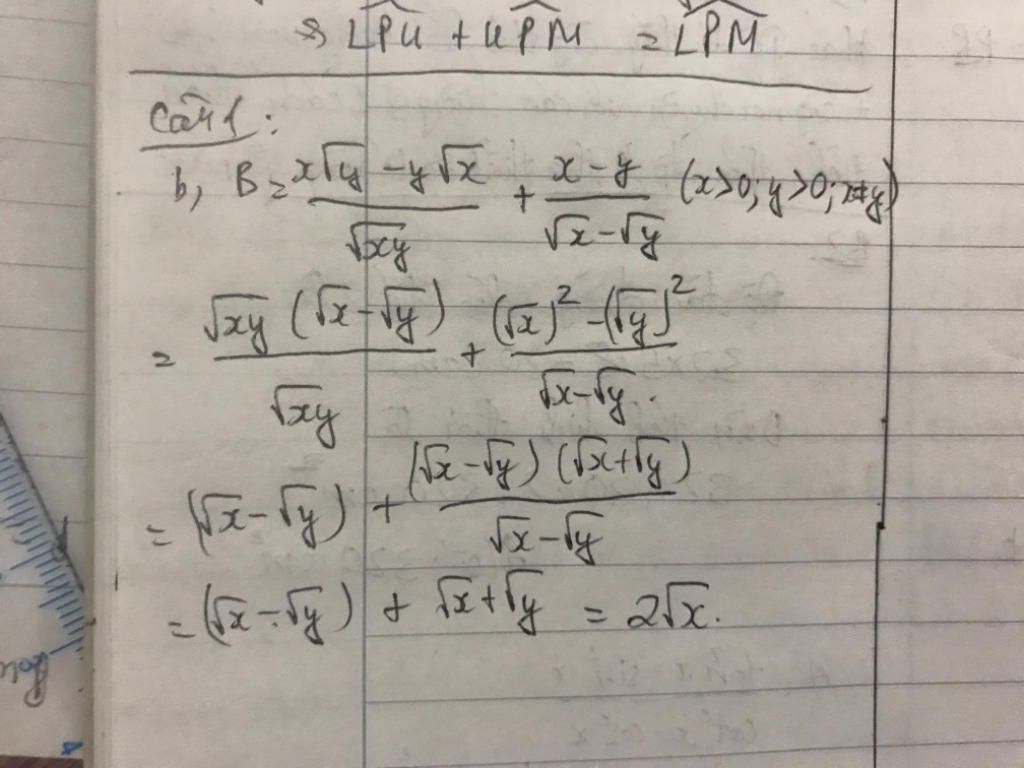 ⇒ LPU + UPM = LPM
Câu 1:
b, B = (x√y - y√x)/√xy + (x - y)/(√x - √y) (x>0; y>0; x≠y)
= √xy (√x - √y)/√xy + ((√x)² - (√y)²)/(√x - √y)
= (√x - √y) + (√x - √y)(√x + √y)/(√x - √y)
= (√x - √y) + √x + √y = 2√x.